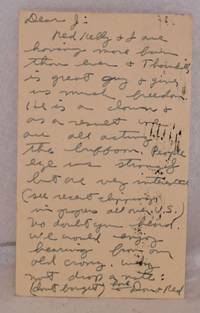 Dear J:
Red Kelly & I are
having more fun
than ever & Thornhill
is great guy & gives
us much freedom
He is a clown &
as a result we
are all acting
the buffoon. People
eye us strangely
but are very interested
(see recent clippings
in papers all over U.S.)
No doubt you
We would enjoy
hearing from our
old crony
not drop a note
(don't forget) Don & Red